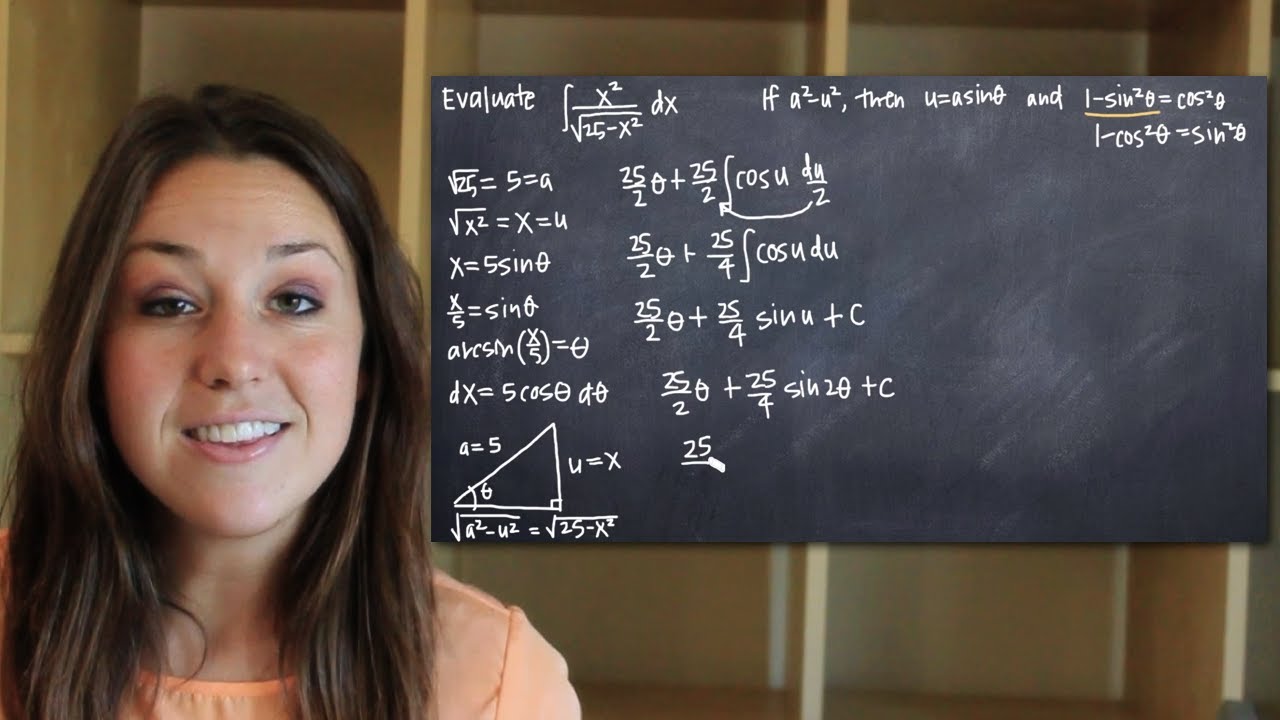 Evaluate ∫ x²/√(25-x²) dx If a²-u², then u=asinθ and 1-sin²θ=cos²θ
1-cos²θ=sin²θ
√25=5=a
√x²=x=u
x=5sinθ
x/5=sinθ
arcsin(x/5)=θ
dx=5cosθ dθ
a=5
u=x
θ
√(a²-u²)=√(25-x²)
25/2 θ+25/2 ∫cosu du/2
25/2 θ+25/4 ∫cosudu
25/2 θ+25/4 sinu+C
25/2 θ+25/4 sin2θ+C
25